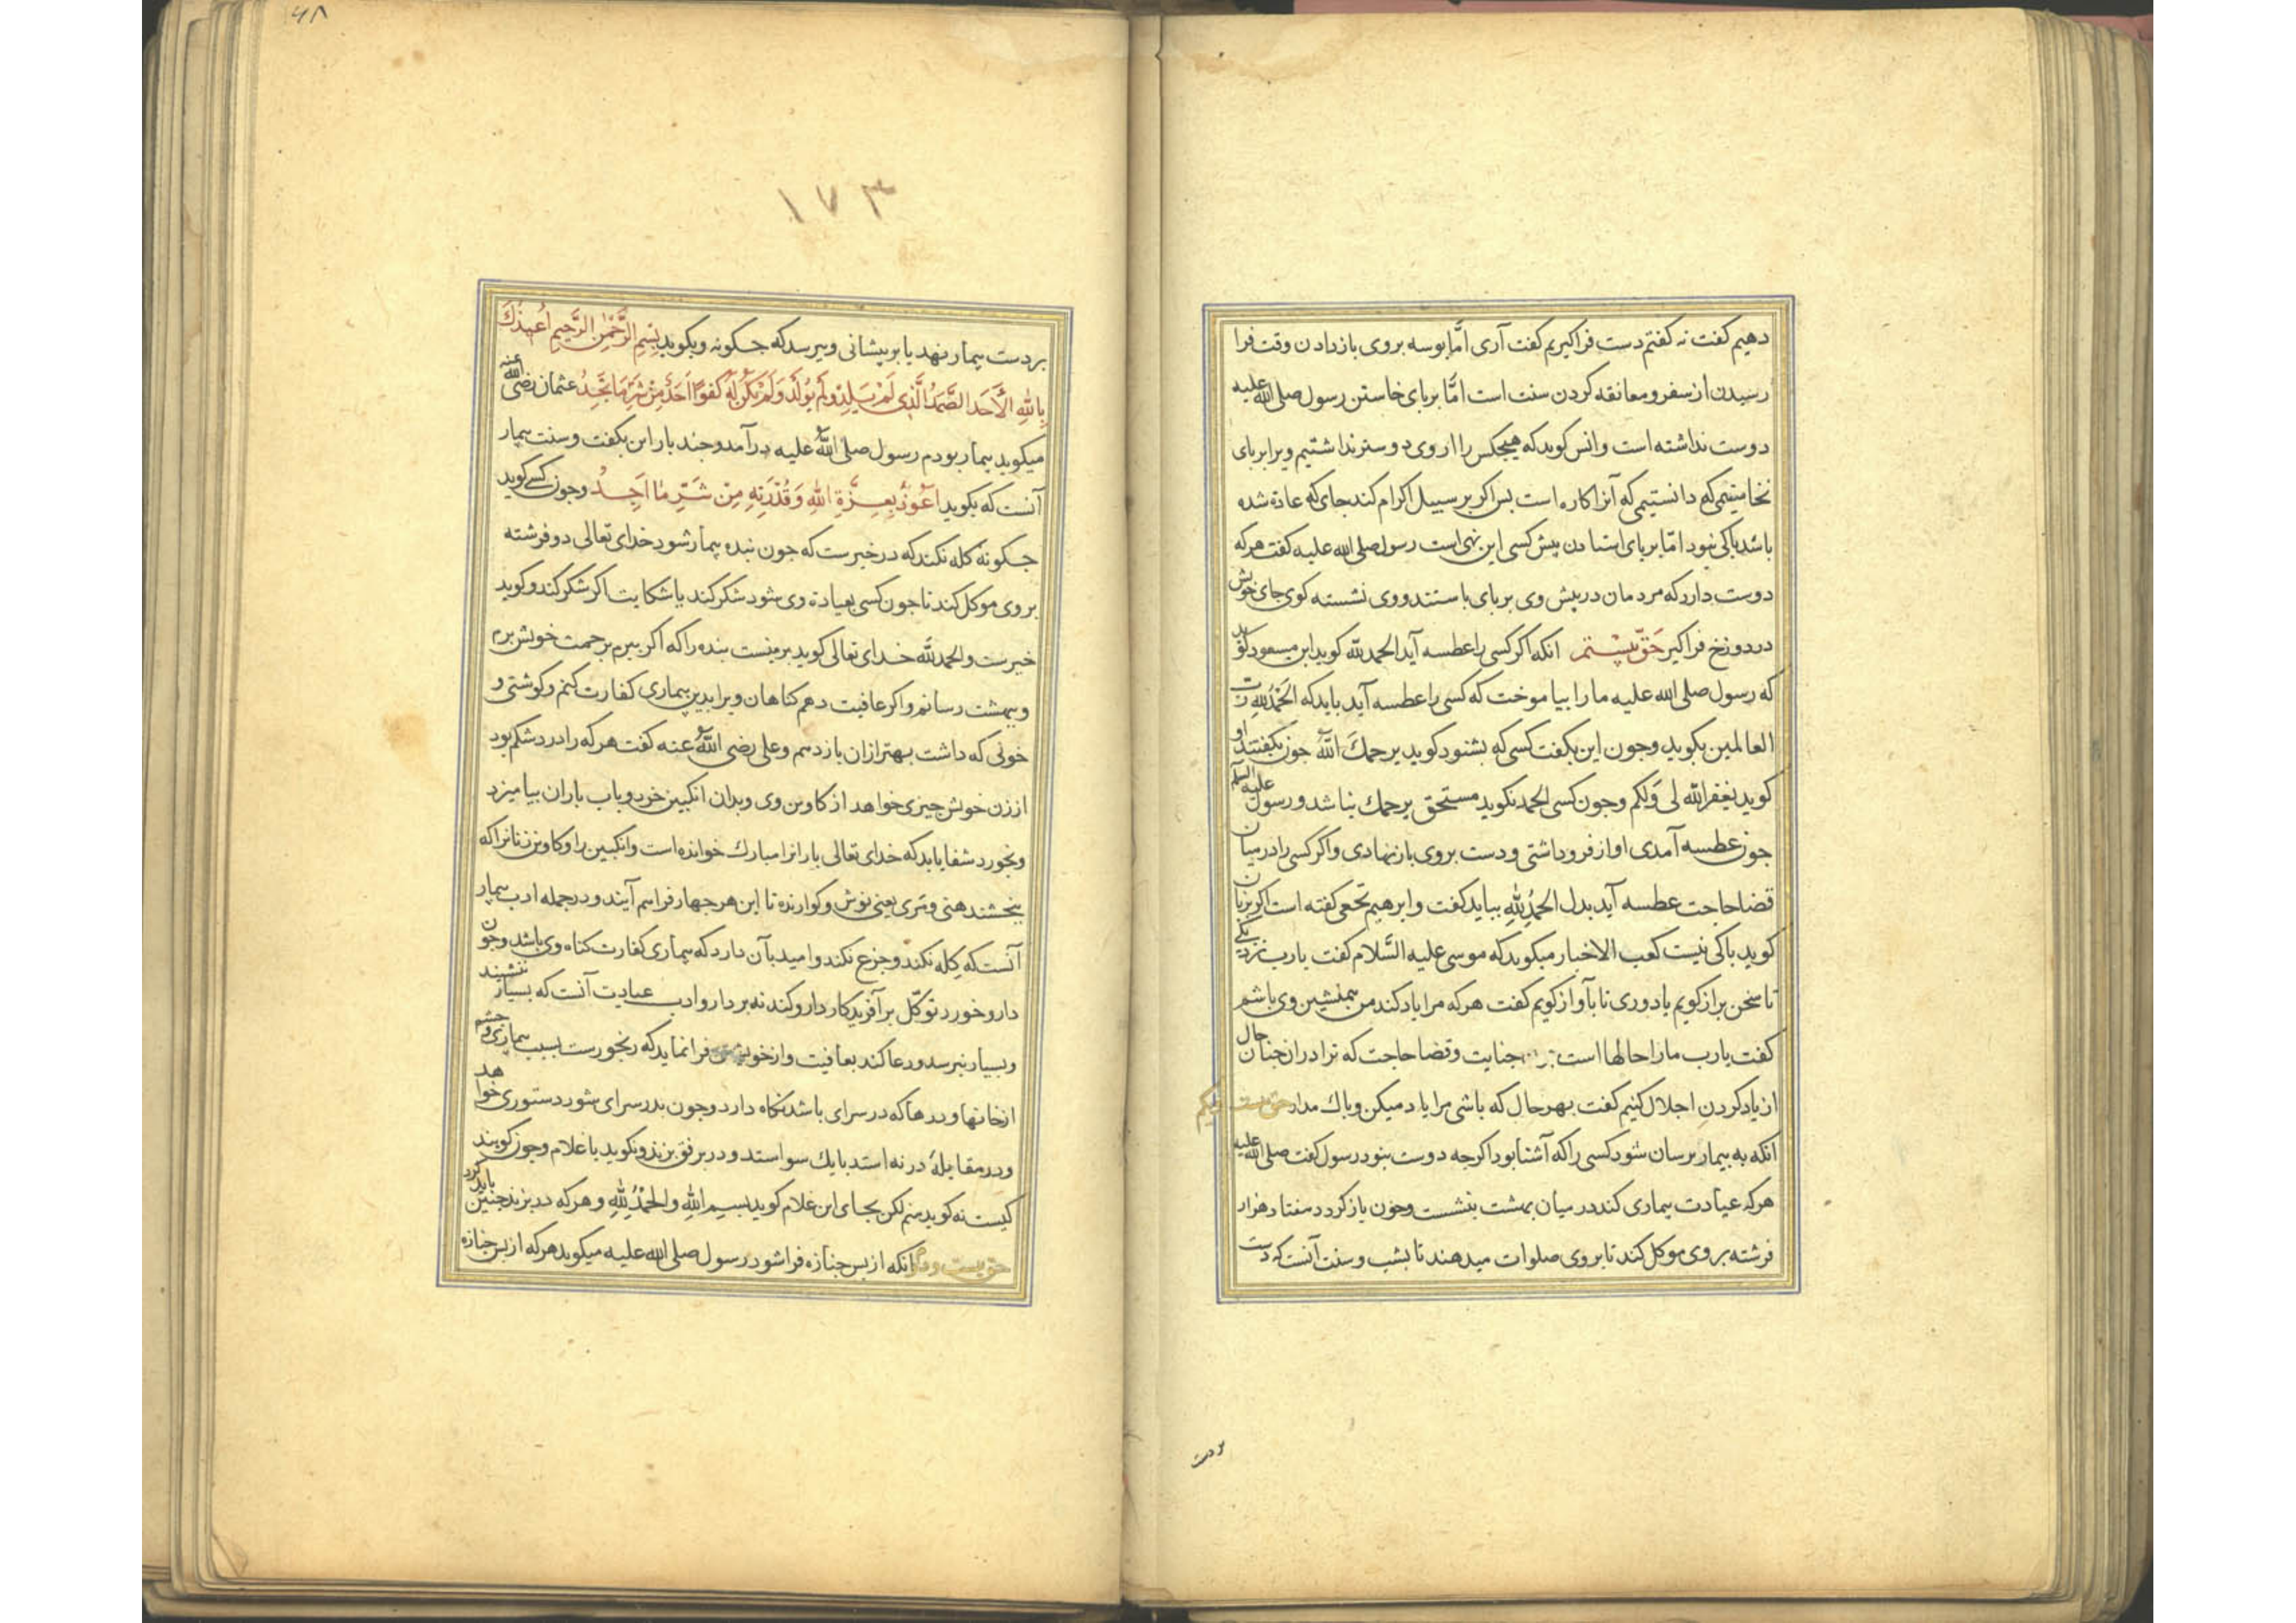 دهیم کفت نه کفتم دست فراکیریم کفت آری امّا بوسه بروی بازدادن وقت فرا
رسیدن از سفر و معانقه کردن سنت است امّا برپای خاستن رسول صلی الله علیه
دوست نداشته است و انس کوید که هیچکس را از وی دوستر نداشتیم و برابر پای
نخاستیمی که دانستیمی که آنرا کاره است بس اکر بر سبیل اکرام کند جای که عادة شده
باشد باکی نبود امّا برپای استادن پیش کسی این نهی است رسول صلی الله علیه کفت هرکه
دوست دارد که مردمان در پیش وی برپای باستند و وی نشسته کوی جای خویش
در دوزخ فراکیر حقّ بیستم انکه اکر کسی را عطسه آید الحمدلله کوید ابن مسعود کوید
که رسول صلی الله علیه ما را بیاموخت که کسی را عطسه آید باید که الحمدلله رب
العالمین بکوید و جون این بکفت کسی که بشنود کوید یرحمک الله جون بکفتند او
کوید یغفر الله لی ولکم و جون کسی الحمد نکوید مستحق یرحمک نباشد و رسول علیه السلم
جون عطسه آمدی اواز فرو داشتی و دست بروی باز نهادی و اکر کسی را در میان
قضا حاجت عطسه آید بدل الحمدلله بباید کفت و ابرهیم نخعی کفته است اکر بزبان
کوید باکی نیست کعب الاخبار میکوید که موسی علیه السّلام کفت یارب نزدیکی
تا سخن براز کویم یا دوری تا بآواز کویم کفت هرکه مرا یاد کند من همنشین وی باشم
کفت یارب ما را حالها است جنایت و قضا حاجت که ترا در ان جنان حال
از یاد کردن اجلال کنیم کفت بهر حال که باشی مرا یاد میکن و باک مدار حق بیست و یکم
انکه به بیمار برسان شود کسی را که آشنا بود اکرجه دوست نبود رسول کفت صلی الله علیه
هرکه عیادت بیماری کند در میان بهشت بنشست و جون باز کردد هفتاد هزار
فرشته بر وی موکل کند تا بر وی صلوات میدهند تا بشب و سنت آنست که دست
بردست
۶۸
۱۷۳
بر دست بیمار نهد یا بر پیشانی و بپرسد که جکونه و بکوید بِسْمِ الرَّحْمٰنِ الرَّحِیمِ اُعِیذُكَ
بِاللهِ الْأَحَدِ الصَّمَدِ الَّذِی لَمْ یَلِدْ وَلَمْ یُولَدْ وَلَمْ یَکُنْ لَهُ کُفُوًا اَحَدٌ مِنْ شَرِّ مَا تَجِدُ عثمان رضی الله عنه
میکوید بیمار بودم رسول صلی الله علیه درآمد و جند بار این بکفت و سنت بیمار
آنست که بکوید اَعُوذُ بِعِزَّةِ اللهِ وَقُدْرَتِهِ مِنْ شَرِّ مَا اَجِدُ و جون کسی کوید
جکونهٔ کله نکند که در خبرست که جون بنده بیمار شود خدای تعالی دو فرشته
بر وی موکل کند تا جون کسی بعیادة وی شود شکر کند یا شکایت اکر شکر کند و کوید
خیرست و الحمدلله خدای تعالی کوید بر منست بنده را که اکر ببرم برحمت خویش برم
و ببهشت رسانم و اکر عافیت دهم کناهان ویرا بدین بیماری کفارت کنم و کوشتی و
خونی که داشت بهتر ازان بازدهم و علی رضی الله عنه کفت هرکه را درد شکم بود
از زن خویش چیزی خواهد از کاوین وی و بدان انکبین خرد و بآب باران بیامیزد
و بخورد شفا یابد که خدای تعالی بارانرا مبارك خوانده است و انکبین را و کاوین زنانرا که
ببخشند هنی و مری یعنی نوش و کوارنده تا این هر جهار فراهم آیند و در جمله ادب بیمار
آنست که کله نکند و جزع نکند و امید بآن دارد که بیماری کفارت کناه وی باشد و جون
دارو خورد توکّل بر آفریدکار دارو کند نه بر دارو ادب عیادت آنست که بسیار ننشیند
و بسیار نپرسد و دعا کند بعافیت و از خویشتن فرا نماید که رنجورست بسبب بیماری و جشم
از خانها و درها که در سرای باشد نکاه دارد و جون بدر سرای شود دستوری خواهد
و در مقابلهٔ در نه استد بایك سو استد و در برفق بزند و نکوید یا غلام و جون کویند
کیست نه کوید منم لکن بجای این غلام کوید بسم الله والحمدلله و هرکه در بزند جنین باید کرد
حق بیست و دوم انکه از بس جنازه فرا شود رسول صلی الله علیه میکوید هرکه از بس جنازه